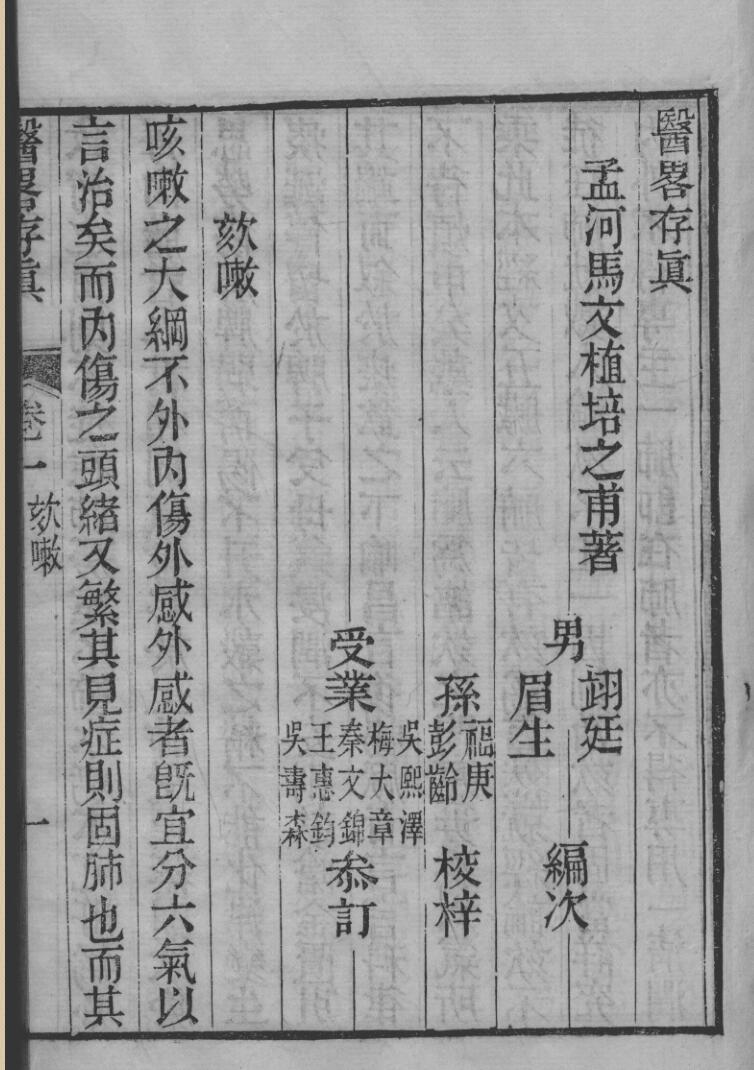 醫畧存眞
孟河馬文植培之甫著
男
翊廷
眉生
編次
孫
福庚
彭齡
校梓
受業
吳熙澤
梅大章
秦文錦
王惠鈞
吳壽森
叅訂
欬嗽
咳嗽之大綱不外內傷外感外感者旣宜分六氣以
言治矣而內傷之頭緒又繁其見症則固肺也而其
醫畧存眞
卷一
欬嗽
一